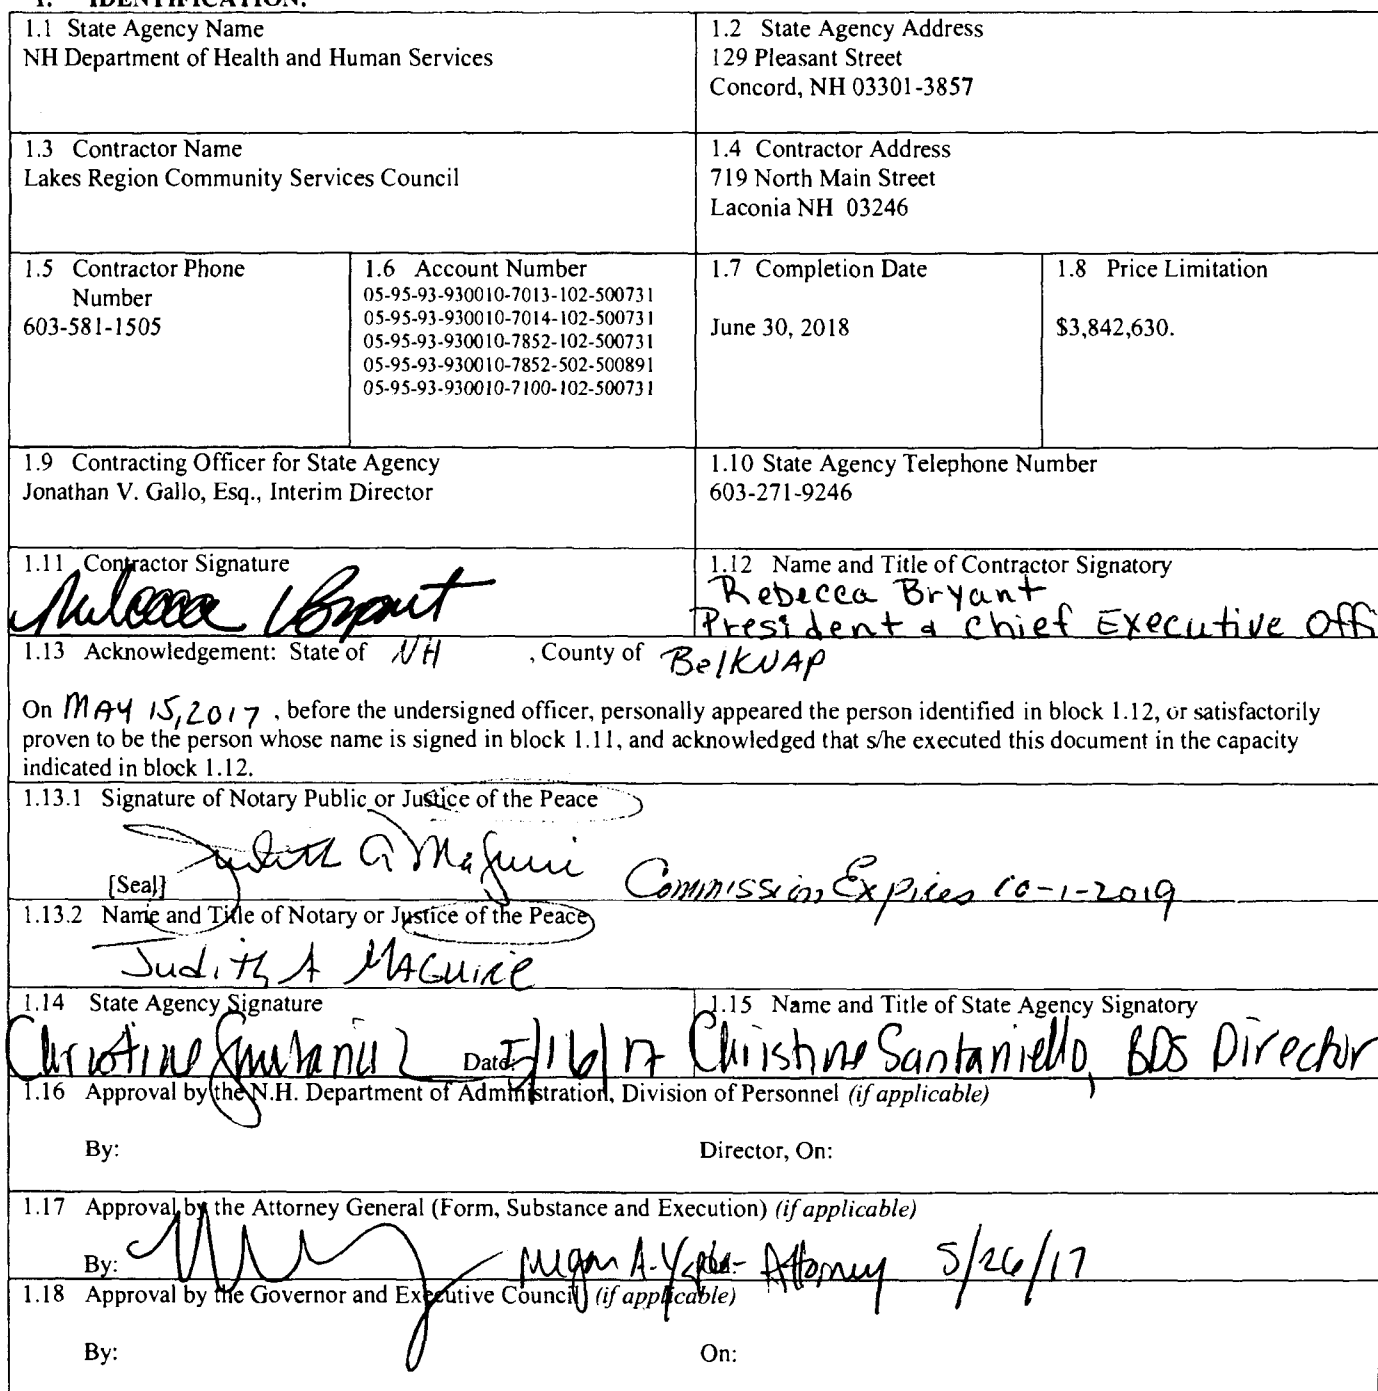 1. IDENTIFICATION.
1.1 State Agency Name
NH Department of Health and Human Services
1.2 State Agency Address
129 Pleasant Street
Concord, NH 03301-3857
1.3 Contractor Name
Lakes Region Community Services Council
1.4 Contractor Address
719 North Main Street
Laconia NH 03246
1.5 Contractor Phone
Number
603-581-1505
1.6 Account Number
05-95-93-930010-7013-102-500731
05-95-93-930010-7014-102-500731
05-95-93-930010-7852-102-500731
05-95-93-930010-7852-502-500891
05-95-93-930010-7100-102-500731
1.7 Completion Date
June 30, 2018
1.8 Price Limitation
$3,842,630.
1.9 Contracting Officer for State Agency
Jonathan V. Gallo, Esq., Interim Director
1.10 State Agency Telephone Number
603-271-9246
1.11 Contractor Signature
Rebecca Bryant
1.12 Name and Title of Contractor Signatory
Rebecca Bryant
President & Chief Executive Offi
1.13 Acknowledgement: State of NH , County of BelKNAP
On MAY 15, 2017 , before the undersigned officer, personally appeared the person identified in block 1.12, or satisfactorily
proven to be the person whose name is signed in block 1.11, and acknowledged that s/he executed this document in the capacity
indicated in block 1.12.
1.13.1 Signature of Notary Public or Justice of the Peace
Judith A Maguire
[Seal] Commission Expires 10-1-2019
1.13.2 Name and Title of Notary or Justice of the Peace
Judith A MAGuire
1.14 State Agency Signature
Christine Santaniello Date: 5/16/17
1.15 Name and Title of State Agency Signatory
Christine Santaniello, BDS Director
1.16 Approval by the N.H. Department of Administration, Division of Personnel (if applicable)
By: Director, On:
1.17 Approval by the Attorney General (Form, Substance and Execution) (if applicable)
By: Megan A. Attorney 5/26/17
1.18 Approval by the Governor and Executive Council (if applicable)
By: On: